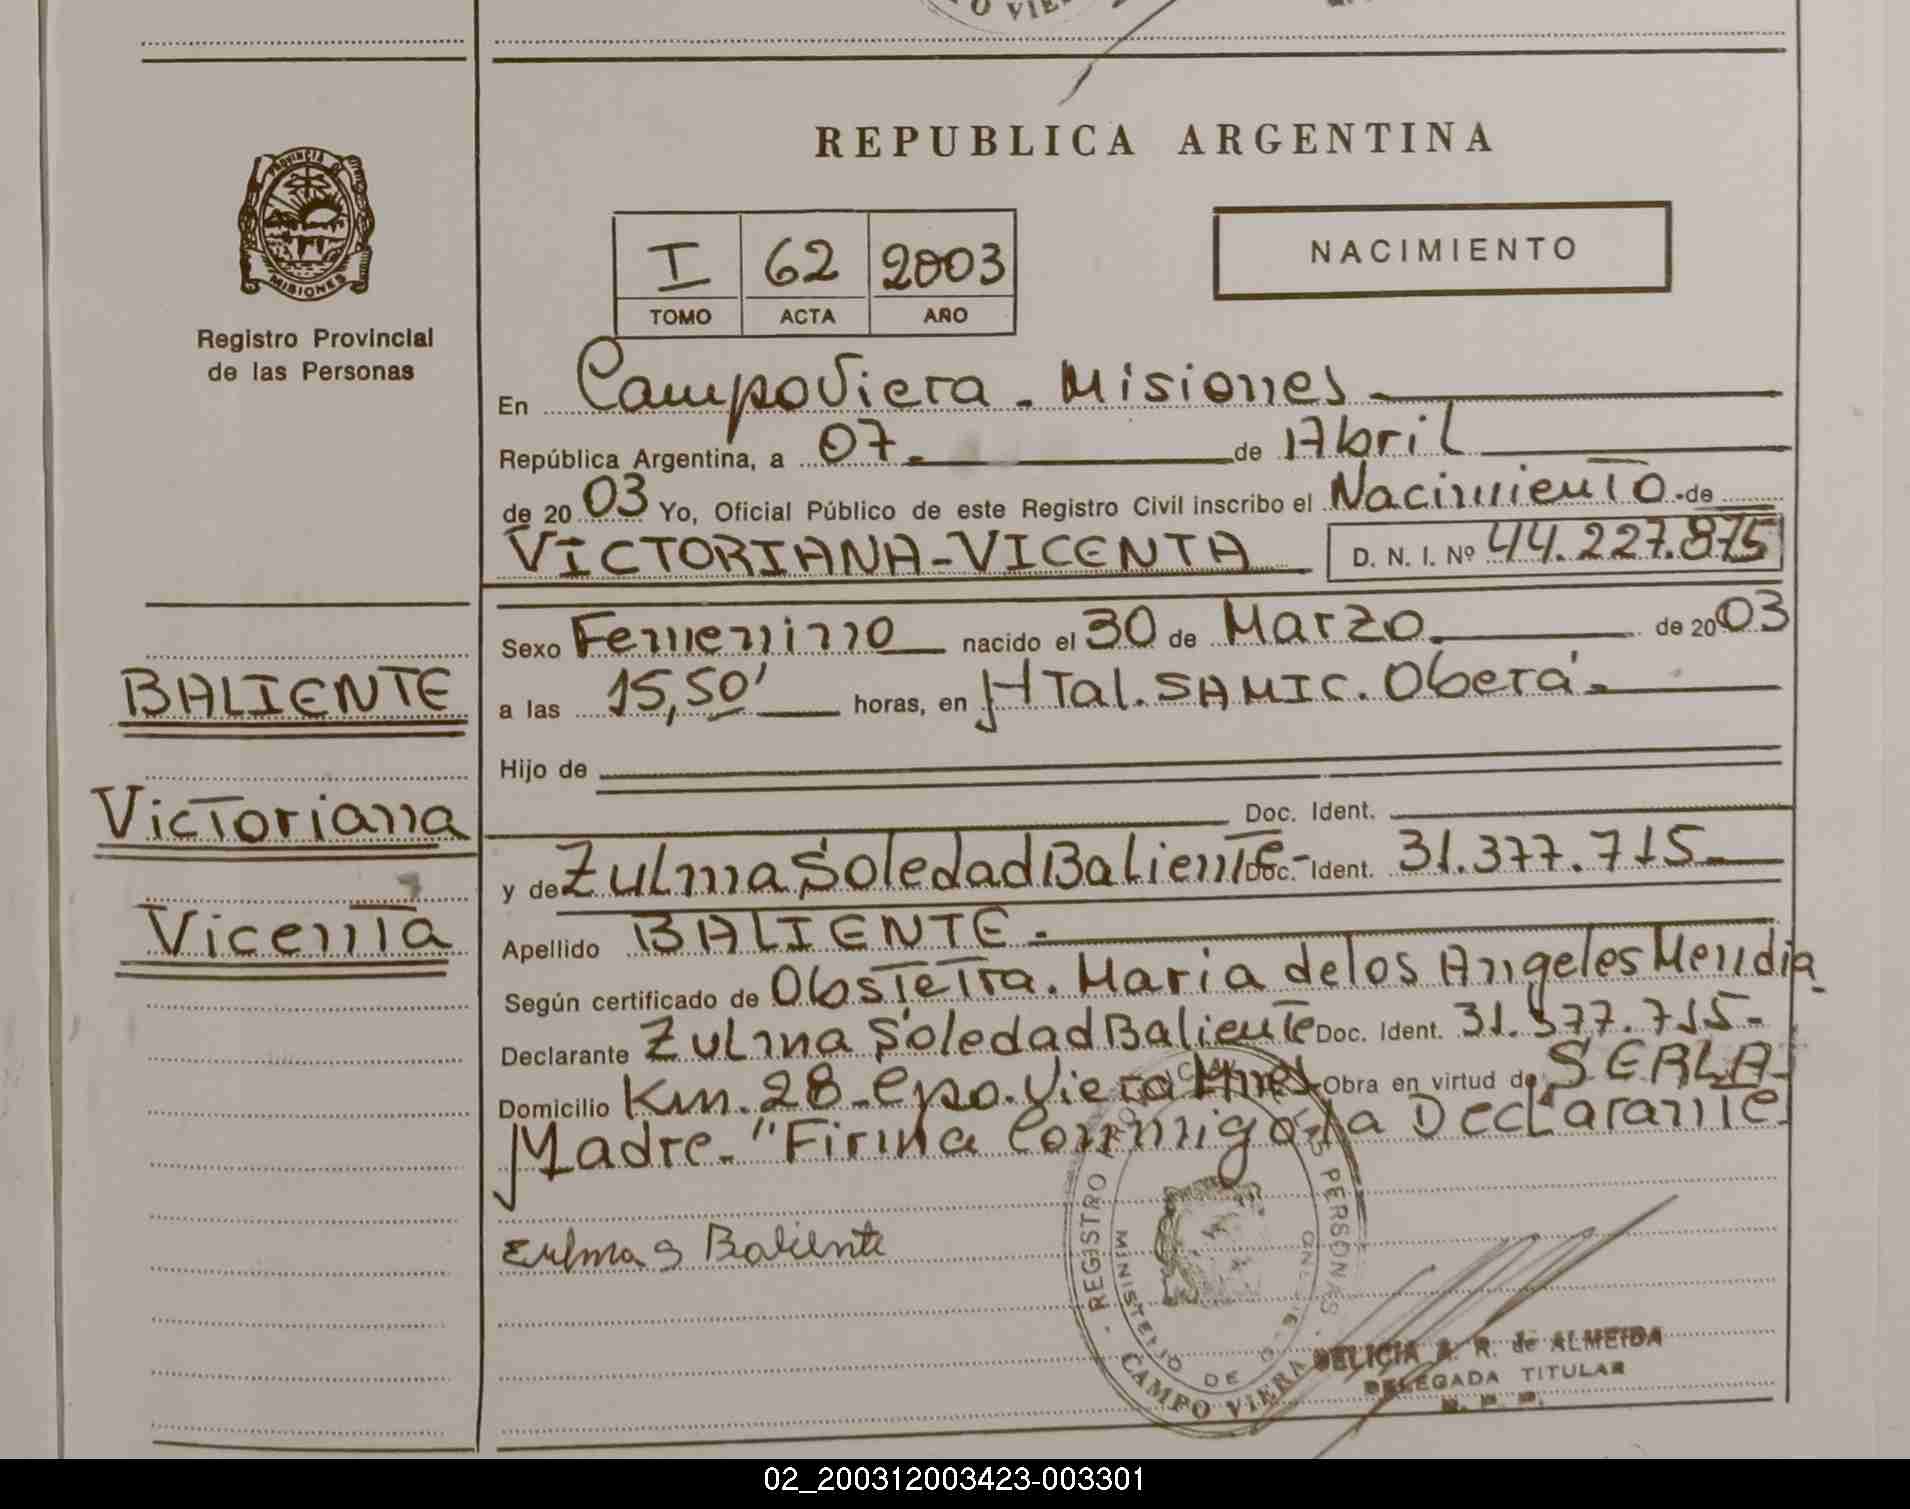 REPUBLICA ARGENTINA
PROVINCIA DE MISIONES
Registro Provincial
de las Personas
I 62 2003
TOMO ACTA AÑO
NACIMIENTO
En Campo Viera - Misiones
República Argentina, a 07. de Abril
de 2003 Yo, Oficial Público de este Registro Civil inscribo el Nacimiento de
VICTORIANA-VICENTA D. N. I. Nº 44.227.875
Sexo Femenino nacido el 30 de Marzo. de 2003
a las 15,50' horas, en HTal. SAMIC. Oberá.
Hijo de
Doc. Ident.
y de Zulma Soledad Baliente- Doc. Ident. 31.377.715-
Apellido BALIENTE-
Según certificado de Obstetra. Maria de los Angeles Mendia.
Declarante Zulma Soledad Baliente Doc. Ident. 31.377.715-
Domicilio Km. 28- Cpo. Viera Mnes Obra en virtud de SERLA-
Madre-"Firma Conmigo la Declarante
BALIENTE
Victoriana
Vicenta
Zulma S Baliente
REGISTRO PERSONAS
MINISTERIO DE
CAMPO VIERA
DELICIA A. R. de ALMEIDA
DELEGADA TITULAR
02_200312003423-003301